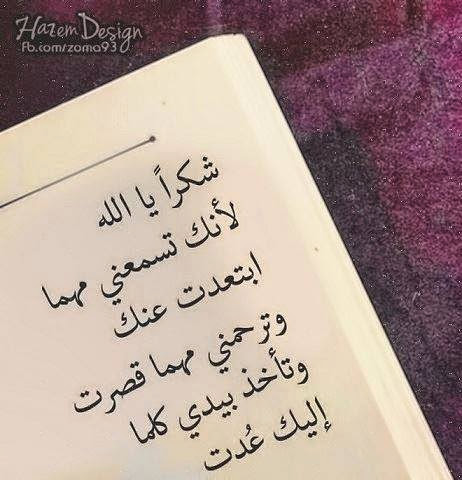 Hazem Design
Fb.com/zoma93
شكراً يا الله
لأنك تسمعني مهما
ابتعدت عنك
وترحمني مهما قصرت
وتأخذ بيدي كلما
إليك عُدت